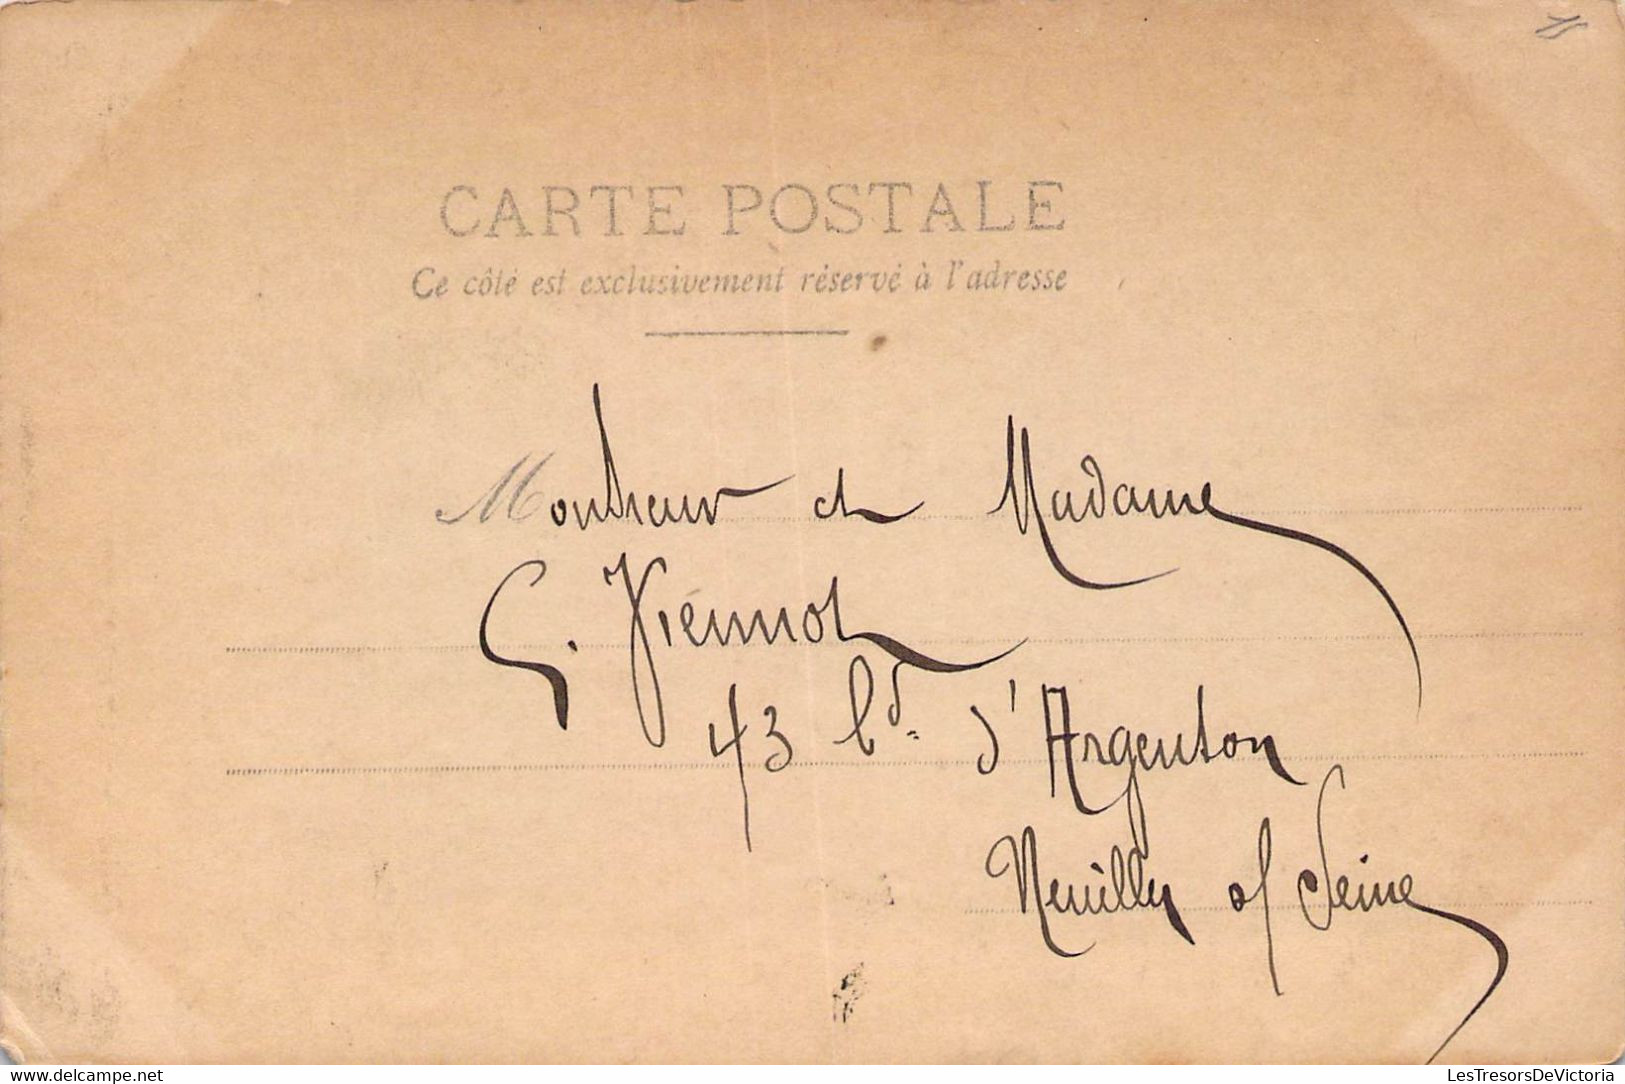 15
CARTE POSTALE
Ce côté est exclusivement réservé à l'adresse
Monsieur et Madame
G. Viennot
43 bd. d'Argenton
Neuilly s/ Seine
www.delcampe.net
LesTresorsDeVictoria